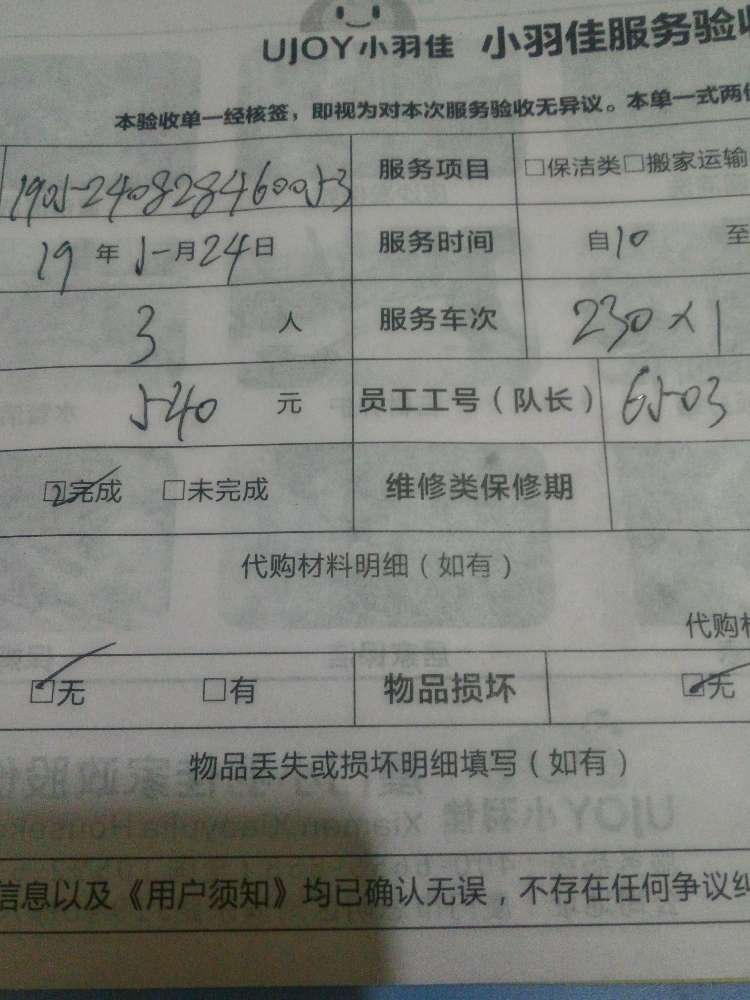 UJOY小羽佳 小羽佳服务验收
本验收单一经核签，即视为对本次服务验收无异议。本单一式两份
1905-240828460053 服务项目 □保洁类□搬家运输
19年5月24日 服务时间 自10 至
3人 服务车次 230×1
540元 员工工号（队长） 6503
☑完成 □未完成 维修类保修期
代购材料明细（如有）
代购材
☑无 □有 物品损坏 ☑无
物品丢失或损坏明细填写（如有）
信息以及《用户须知》均已确认无误，不存在任何争议纠